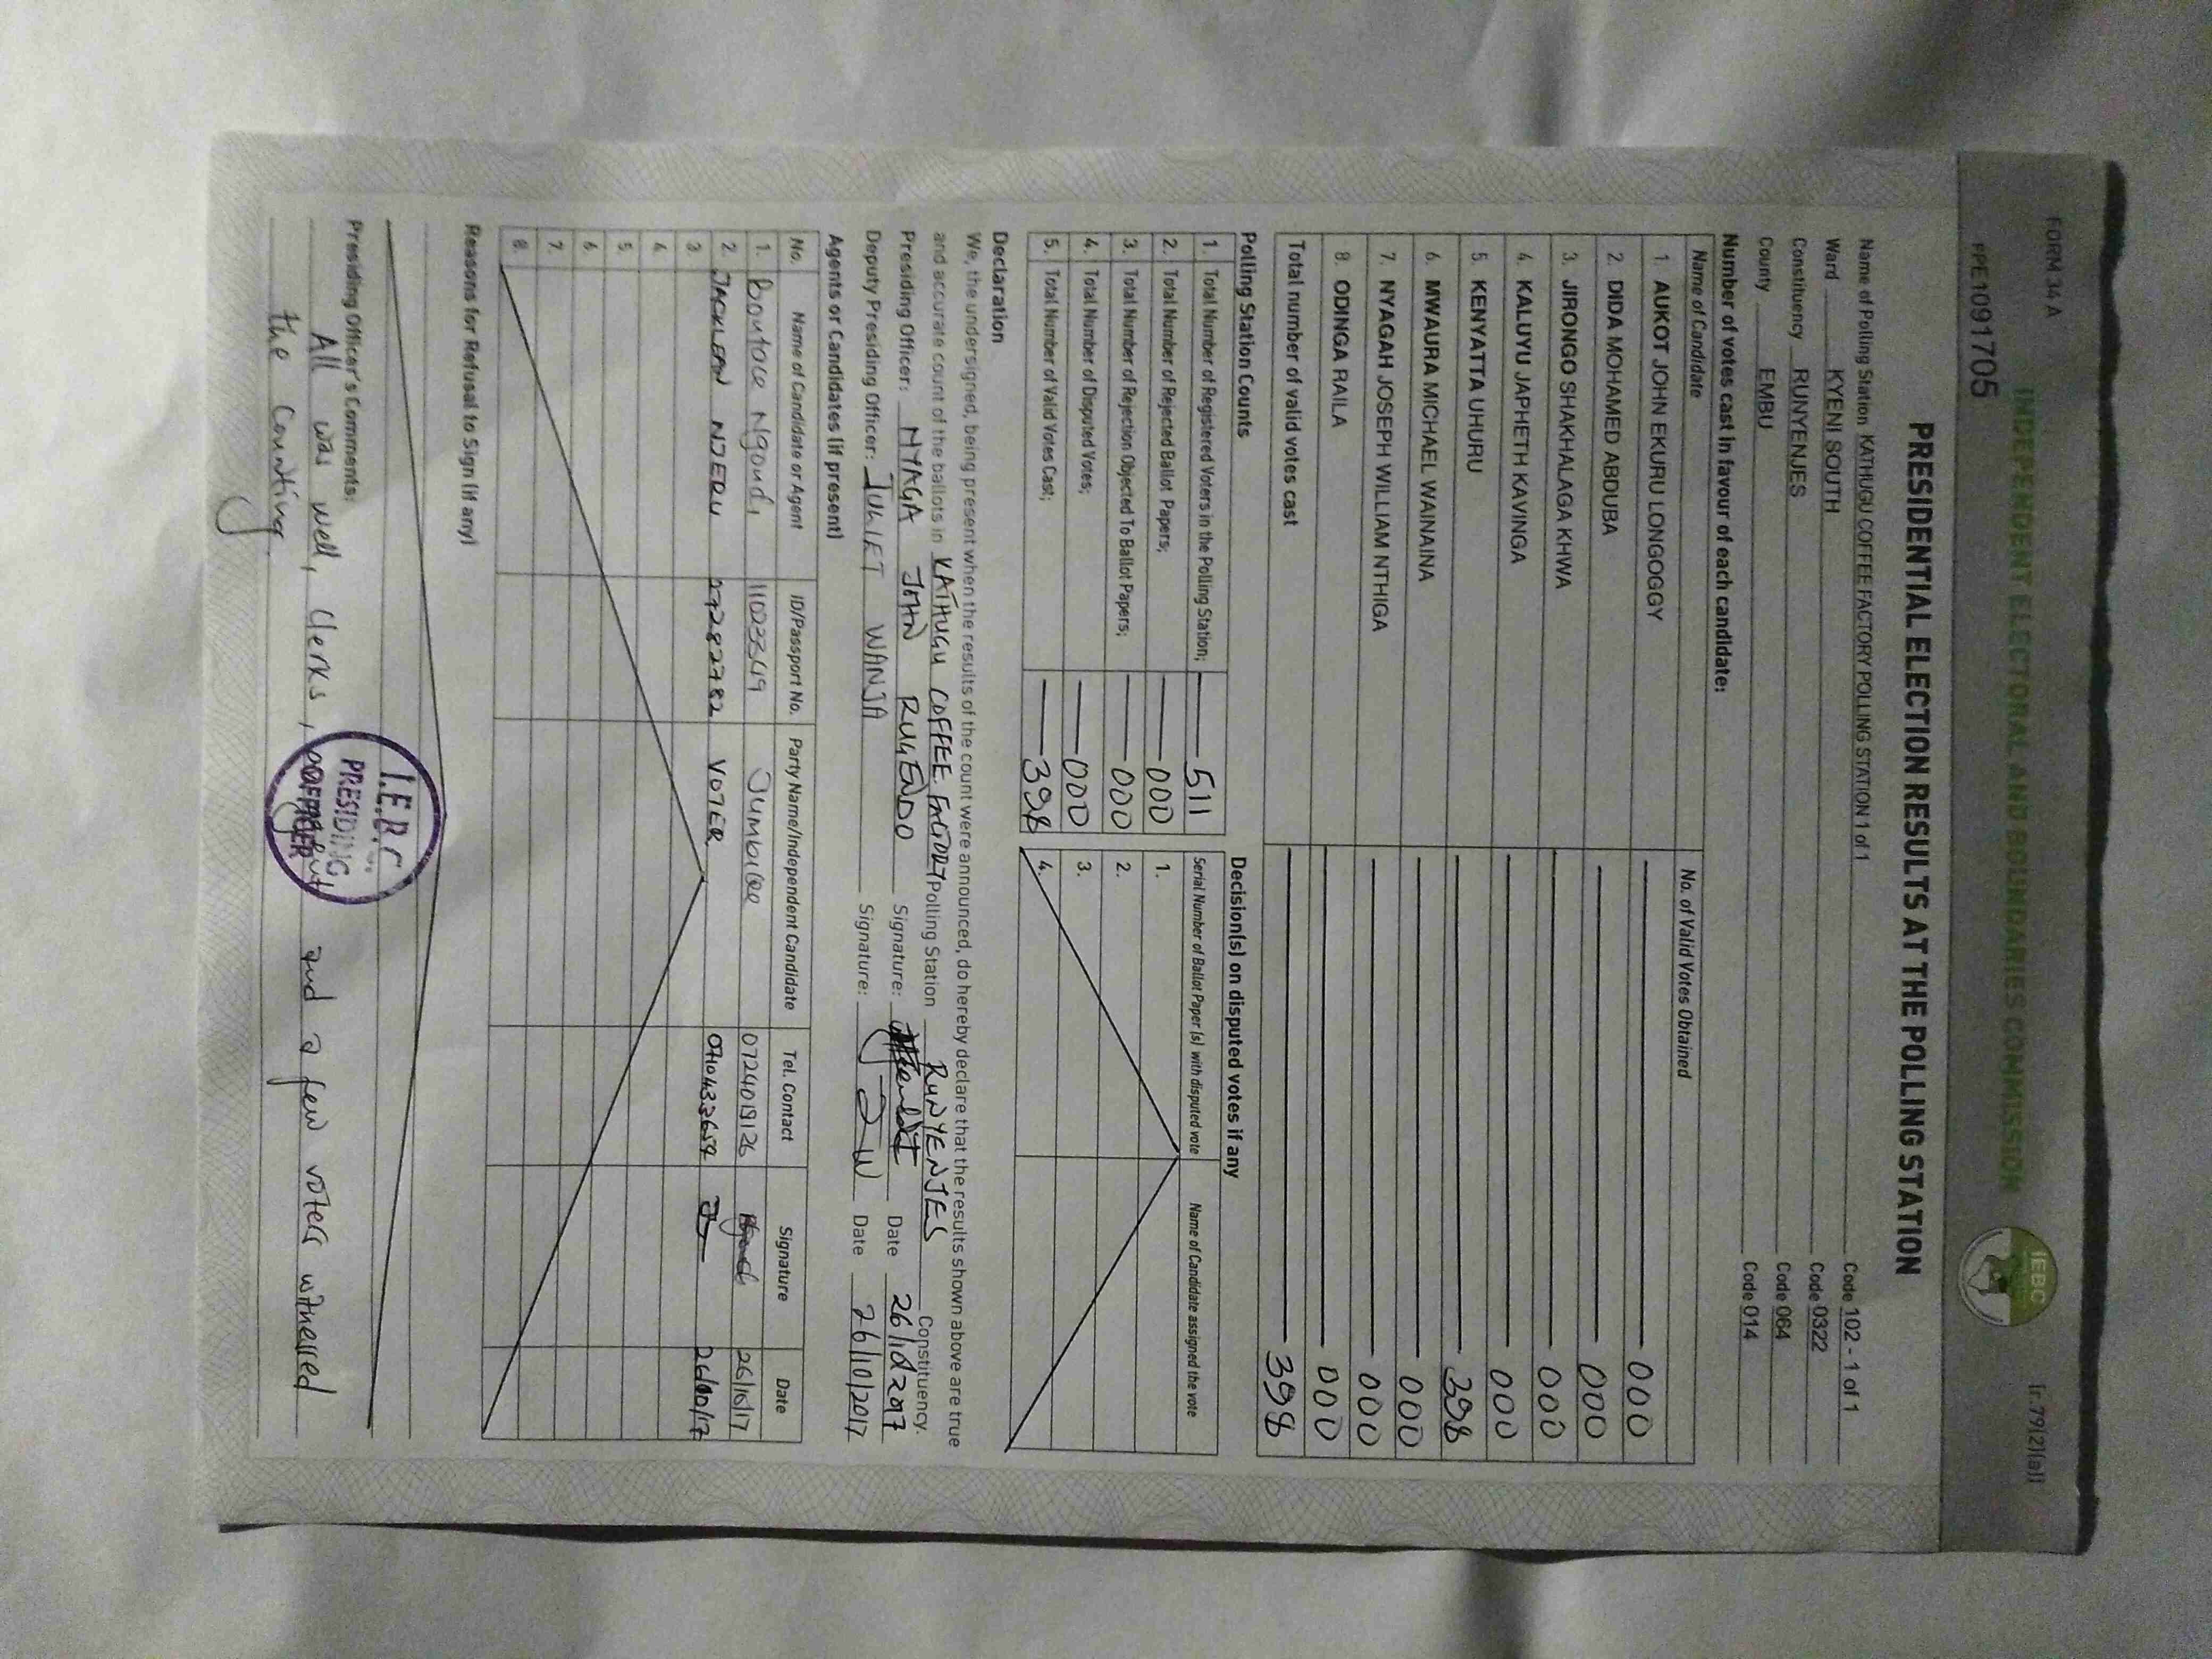 FORM 34 A
[r.79(2)(a)]
INDEPENDENT ELECTORAL AND BOUNDARIES COMMISSION
IEBC
PPE1091705
PRESIDENTIAL ELECTION RESULTS AT THE POLLING STATION
Name of Polling Station KATHUGU COFFEE FACTORY POLLING STATION 1 of 1 Code 102 - 1 of 1
Ward KYENI SOUTH Code 0322
Constituency RUNYENJES Code 064
County EMBU Code 014
Number of votes cast in favour of each candidate:
Name of Candidate No. of Valid Votes Obtained
1. AUKOT JOHN EKURU LONGOGGY 000
2. DIDA MOHAMED ABDUBA 000
3. JIRONGO SHAKHALAGA KHWA 000
4. KALUYU JAPHETH KAVINGA 000
5. KENYATTA UHURU 398
6. MWAURA MICHAEL WAINAINA 000
7. NYAGAH JOSEPH WILLIAM NTHIGA 000
8. ODINGA RAILA 000
Total number of valid votes cast 398
Polling Station Counts
1. Total Number of Registered Voters in the Polling Station; 511
2. Total Number of Rejected Ballot Papers; 000
3. Total Number of Rejection Objected To Ballot Papers; 000
4. Total Number of Disputed Votes; 000
5. Total Number of Valid Votes Cast; 398
Decision(s) on disputed votes if any
Serial Number of Ballot Paper (s) with disputed vote Name of Candidate assigned the vote
1.
2.
3.
4.
Declaration
We, the undersigned, being present when the results of the count were announced, do hereby declare that the results shown above are true
and accurate count of the ballots in KATHUGU COFFEE FACTORY Polling Station RUNYENJES Constituency.
Presiding Officer: NYAGA JOHN RUGENDO Signature: Date 26/10/2017
Deputy Presiding Officer: JULIET WANJA Signature: Date 26/10/2017
Agents or Candidates (if present)
No. Name of Candidate or Agent ID/Passport No. Party Name/Independent Candidate Tel. Contact Signature Date
1. Ngondi 11023349 Jumbilee 0724019126 26/10/17
2. NJERU 27282782 VOTER 26/10/17
3.
4.
5.
6.
7.
8.
Reasons for Refusal to Sign (if any)
Presiding Officer's Comments:
All was well, clerks, and a few voters witnessed
the Counting.
I.E.B.C
PRESIDING
OFFICER